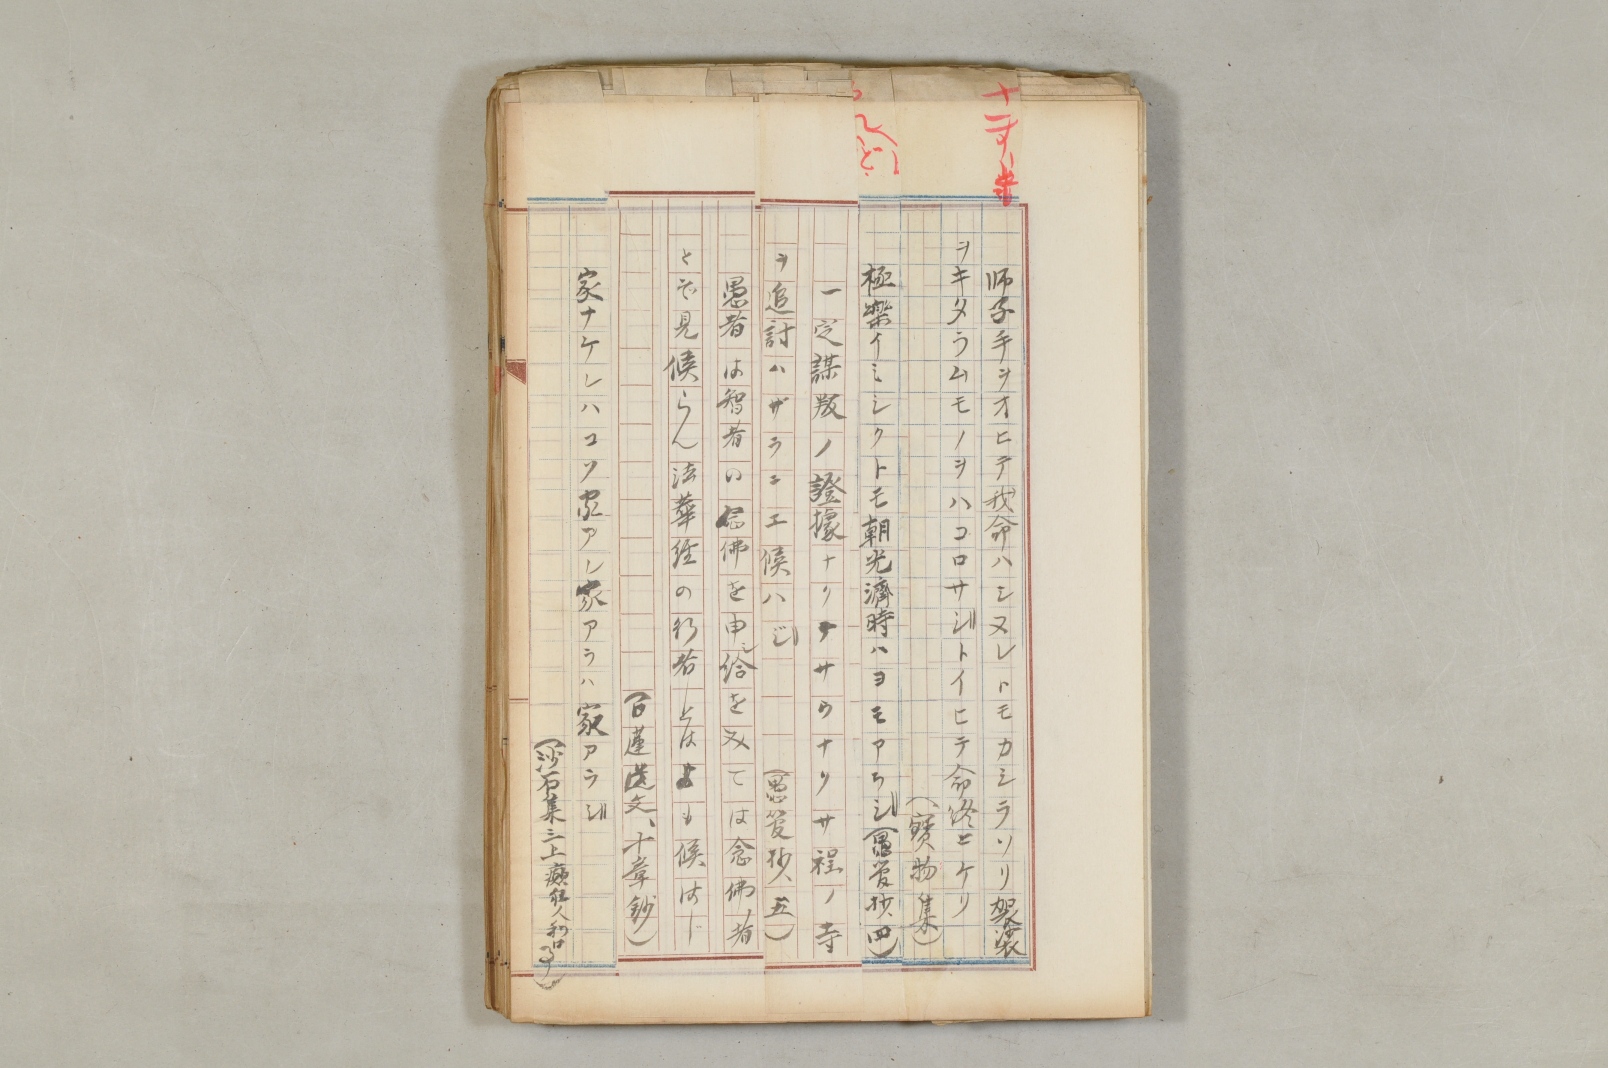 師子手ヲオヒテ我命ハシヌレトモカシラソリ袈裟
ヲキタラムモノヲハコロサジトイヒテ命終ニケリ
(寶物集)
極樂イミシクトモ朝光濟時ハヨモアラジ(愚管抄、四)
一定謀叛ノ證據ナクテサウナクサ程ノ寺
ヲ追討ハザラニエ候ハジ
(愚管抄、五)
愚者は智者の念佛を申し給をみては念佛者
とぞ見候らん法華經の行者とはよも候はじ
(日蓮遺文、十章鈔)
家ナケレハコソ家アレ家アラハ家アラジ
(沙石集三上癲狂人利口事)